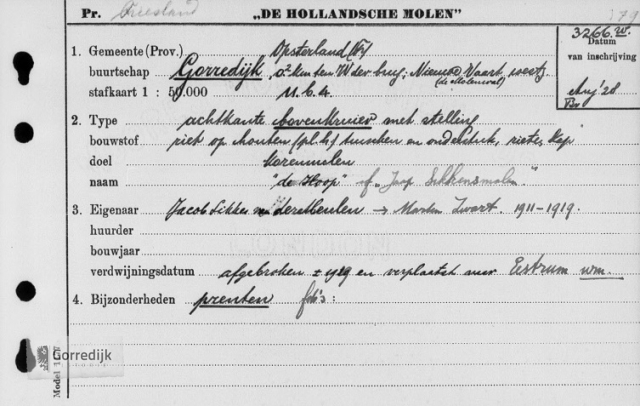 Pr. Friesland „DE HOLLANDSCHE MOLEN” 179
3266.W.
Datum
van inschrijving
Aug '28
1. Gemeente (Prov.) Opsterland (Fr)
buurtschap Gorredijk ten W der brug; Nieuwe Vaart,
(de Molenwal)
stafkaart 1 : 50.000 11.C.4.
2. Type achtkante bovenkruier met stelling
bouwstof riet op houten tusschen en onderstuk, riete kap
doel korenmolen
naam "de Hoop" of "Jaap Sikkensmolen"
3. Eigenaar Jacob Sikkes → Marten Zwart. 1911-1919.
huurder
bouwjaar
verdwijningsdatum afgebroken ± 1919 en verplaatst naar Eestrum wm.
4. Bijzonderheden prenten foto's :
Gorredijk
Model